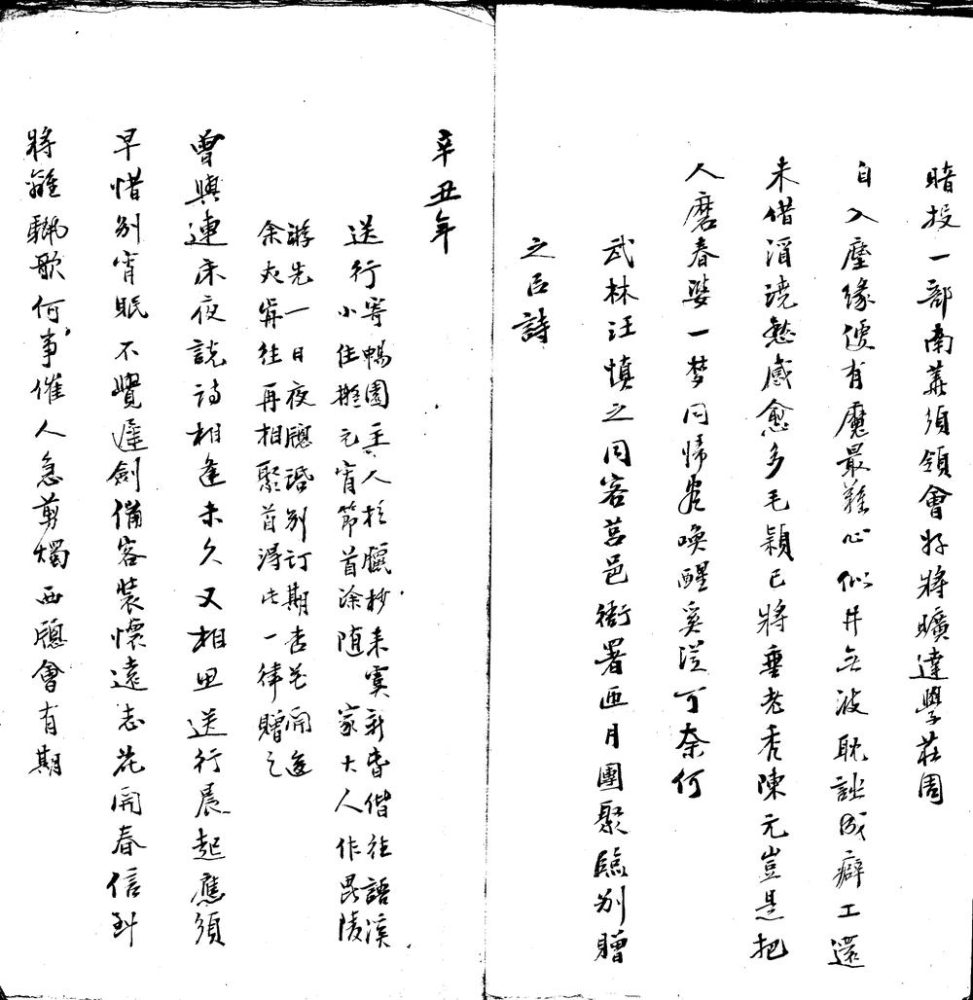 暗投一部南華須領會好將曠達學莊周
自入塵緣便有魔最難心似井無波耽詩成癖工還
未借酒澆愁感愈多毛穎已將垂老禿陳元豈是把
人磨春婆一夢同歸處喚醒奚從可奈何
武林汪慎之同客莒邑衙署匝月團聚臨別贈
之以詩
辛丑年
送行寄暢園主人於臘抄來寞新昏偕往語溪
小住擬元宵節首涂随家大人作毘陵
游先一日夜牕話別订期杏花開返
余夾牕往再相聚首得此一律贈之
曾與連床夜説詩相逢未久又相思送行晨起應須
早惜別宵眠不覺遲劍備客裝懷遠志花開春信到
將離驪歌何事催人急剪燭西牕會有期